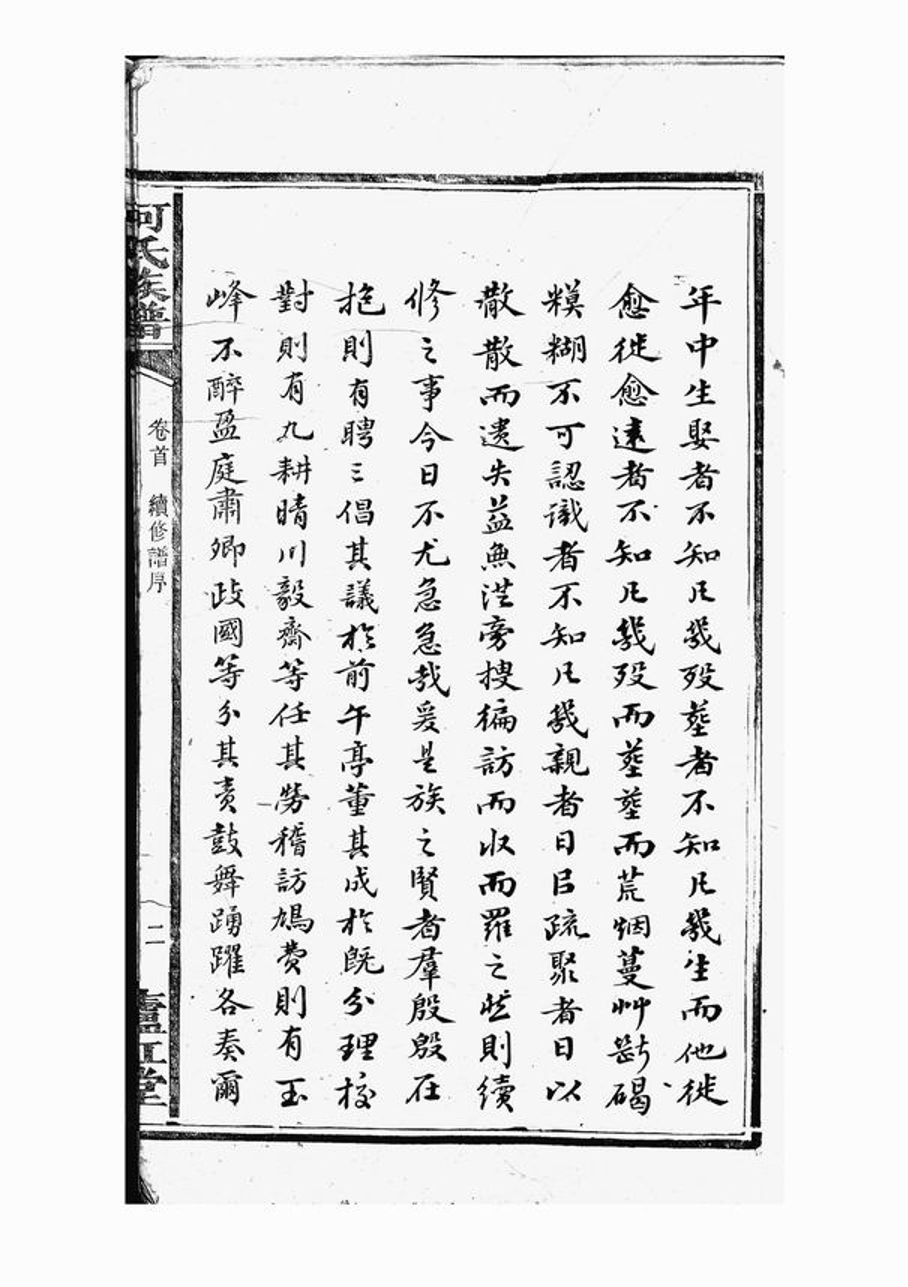 年中生娶者不知凡幾歿塟者不知凡幾生而他徙
愈徙愈遠者不知凡幾歿而塟塟而荒烟蔓艸斷碣
糢糊不可認識者不知凡幾親者日已疏聚者日以
散散而遺失益無從旁搜徧訪而收而羅之然則續
修之事今日不尤急急哉爰是族之賢者羣殷殷在
抱則有聘三倡其議於前午亭董其成於旣分理校
對則有九耕晴川毅齋等任其勞稽訪鳩費則有玉
峰不醉盈庭肅卿政國等分其責鼓舞踴躍各奏爾
何氏族譜
卷首 續修譜序
二
廬江堂